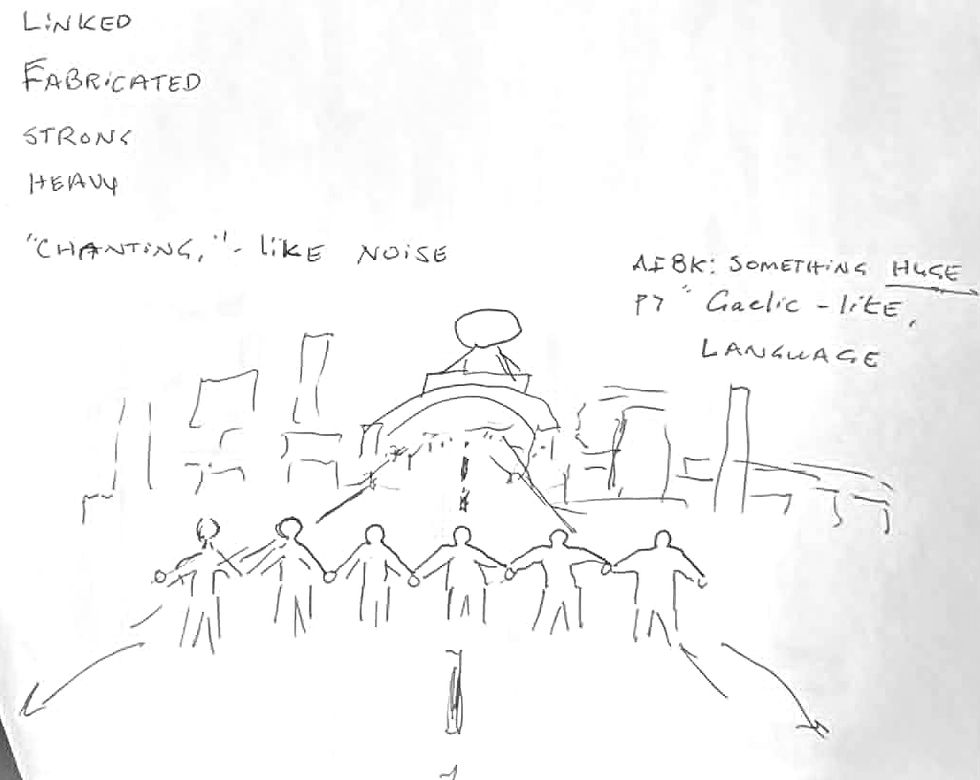 LINKED
FABRICATED
STRONG
HEAVY
"CHANTING,"-like NOISE
AIBK: SOMETHING HUGE
"Gaelic-like,
LANGUAGE